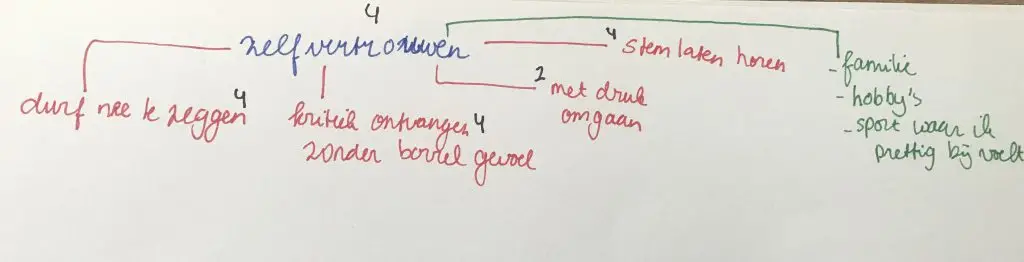 4
zelfvertrouwen
4 stem laten horen
- familie
- hobby's
- sport waar ik
prettig bij voelt
2 met druk
omgaan
durf nee te zeggen 4
kritiek ontvangen 4
zonder gevoel